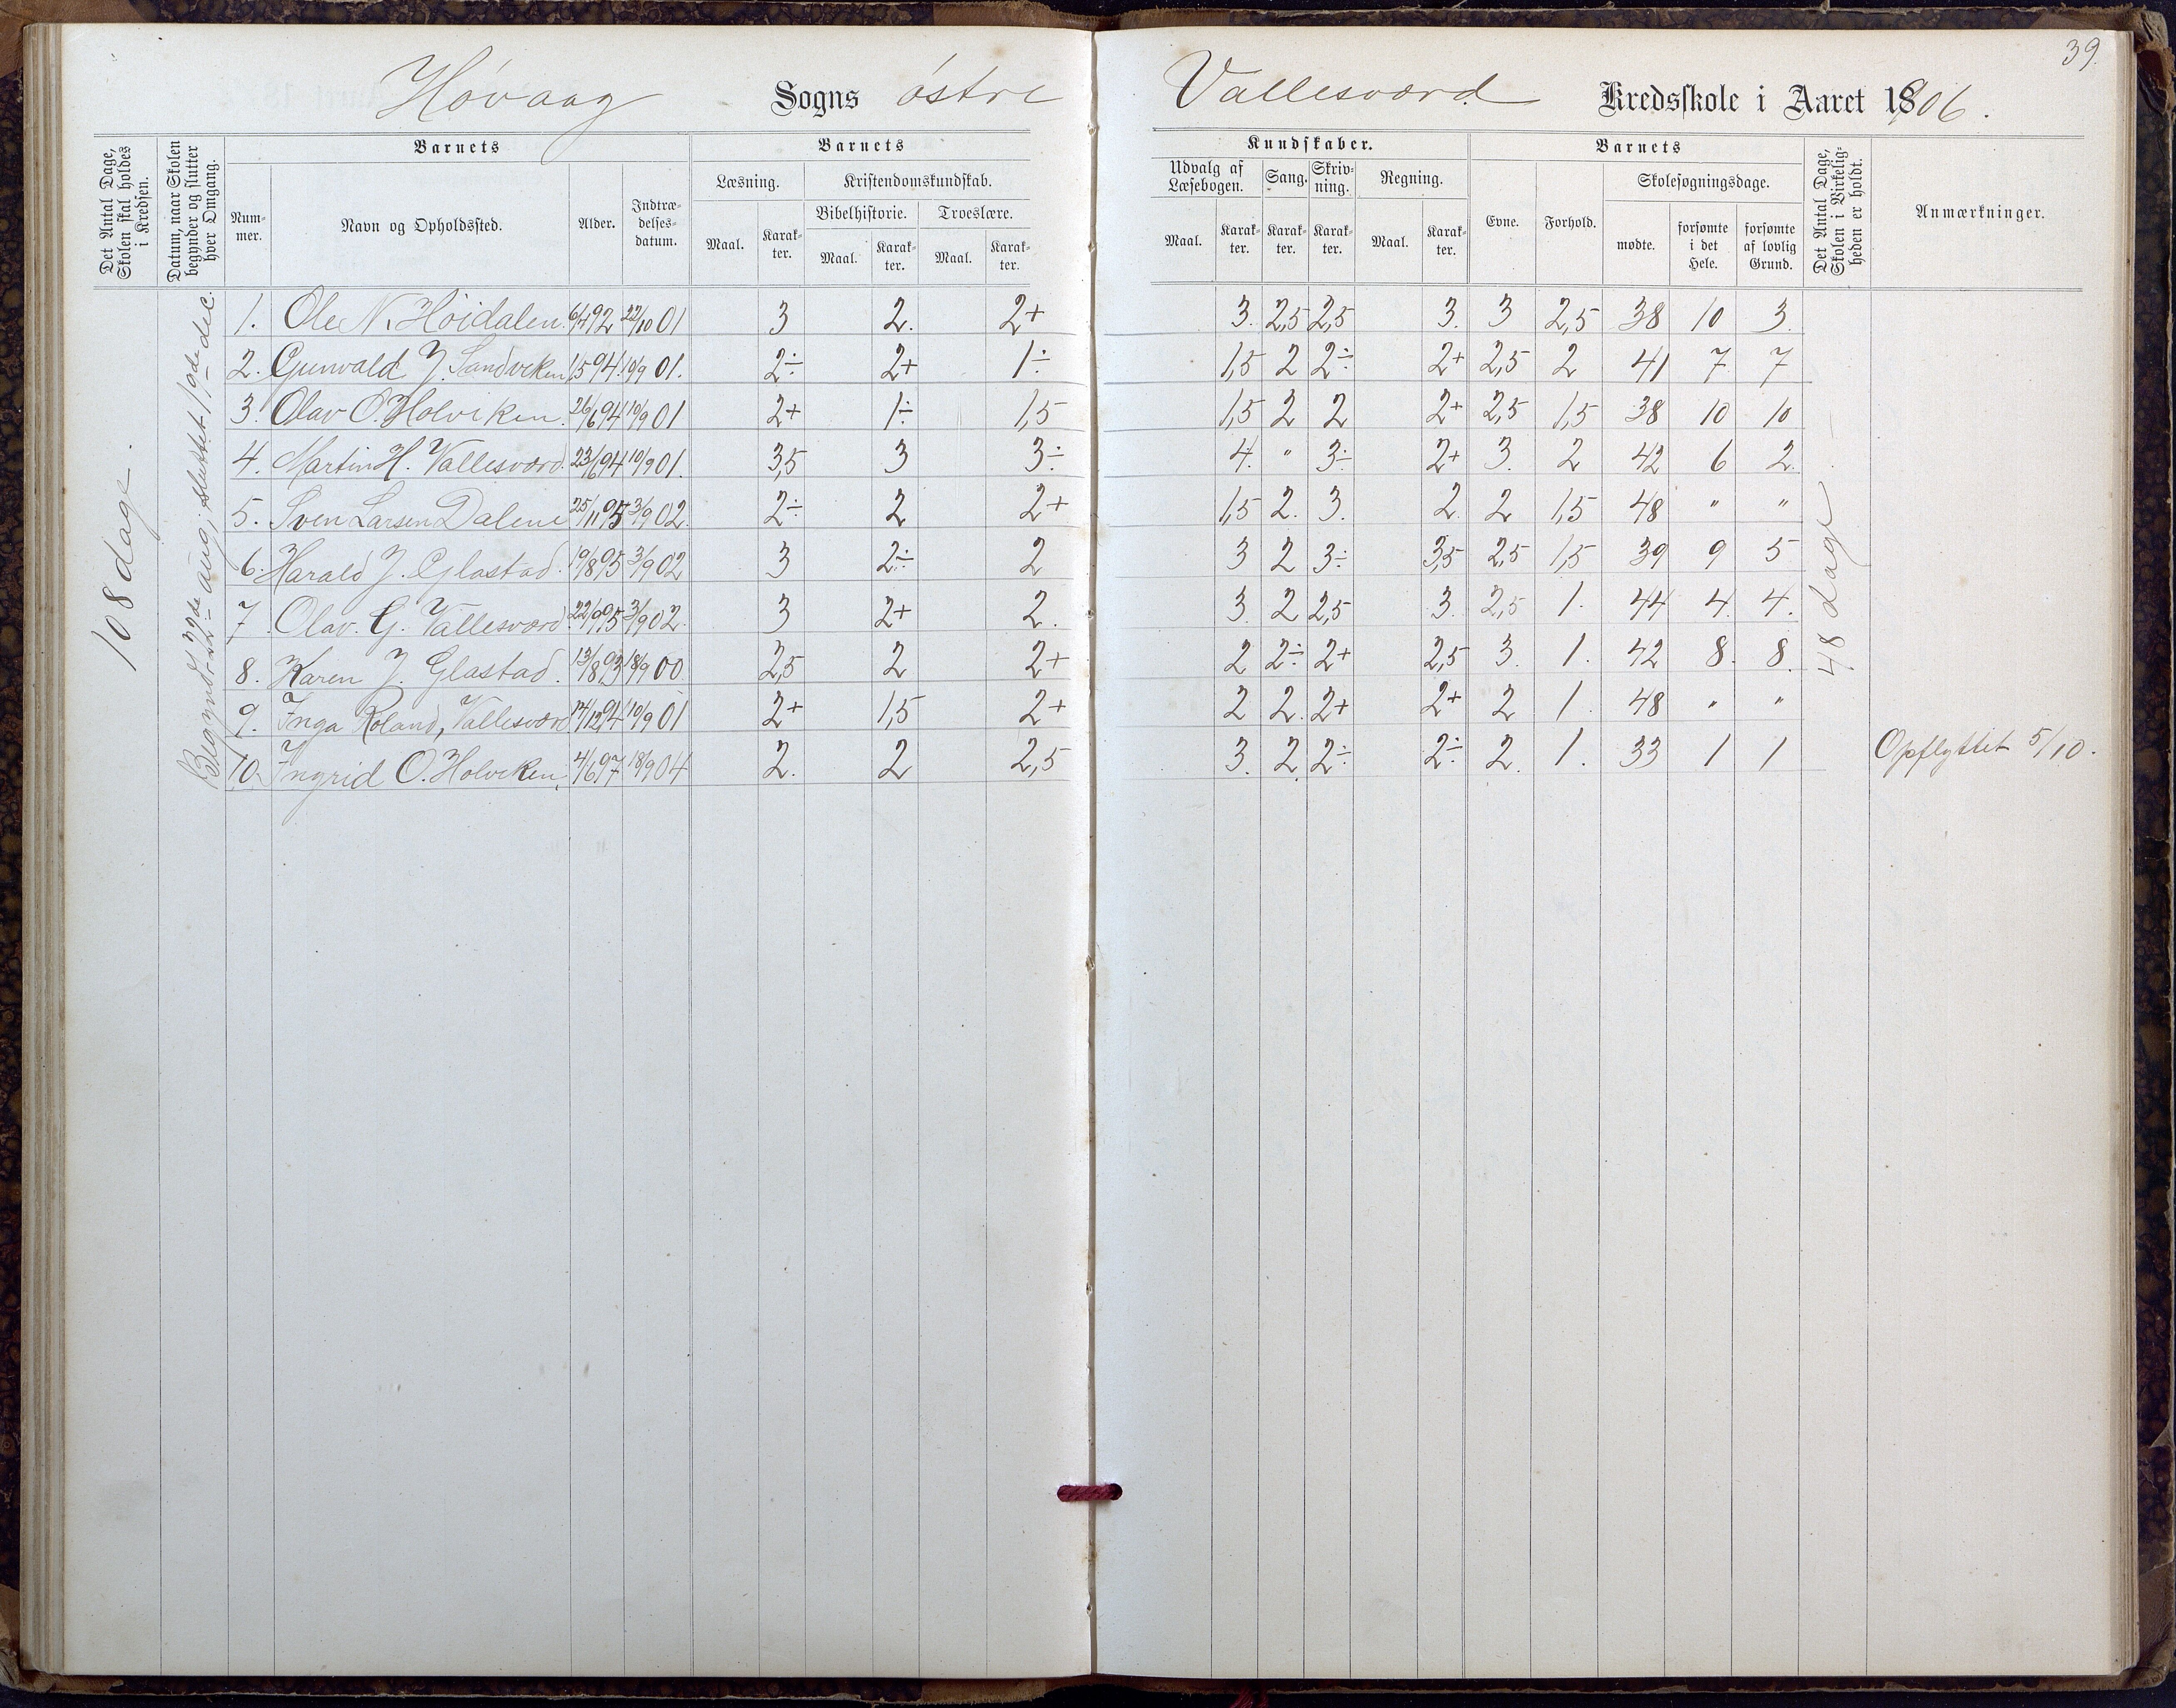 39.
Høvaag Sogns østre Vallesværd Kredsskole i Aaret 1906.
Det Antal Dage, Skolen skal holdes i Kredsen.
Datum, naar Skolen begynder og slutter hver Omgang.
Barnets
Nummer.
Navn og Opholdssted.
Alder.
Indtrædelsesdatum.
Barnets
Læsning.
Maal.
Karakter.
Kristendomskundskab.
Bibelhistorie.
Maal.
Karakter.
Troeslære.
Maal.
Karakter.
Kundskaber.
Udvalg af Læsebogen.
Maal.
Karakter.
Sang.
Karakter.
Skrivning.
Karakter.
Regning.
Maal.
Karakter.
Barnets
Evne.
Forhold.
Skolesøgningsdage.
mødte.
forsømte i det Hele.
forsømte af lovlig Grund.
Det Antal Dage, Skolen i Virkeligheden er holdt.
Anmærkninger.
108 dage.
Begynd. 22de aug; sluttet 1ode dec.
1. Ole N. Høidalen. 6/4 92 22/10 01 3 2. 2+ 3. 2,5 2,5 3. 3 2,5 38 10 3.
2. Gunvald J. Sandviken 1/5 94. 10/9 01. 2÷ 2+ 1÷ 1,5 2 2÷ 2+ 2,5 2 41 7 7
3. Olav O. Holviken. 26/6 94 10/9 01 2+ 1÷ 1,5 1,5 2 2 2+ 2,5 1,5 38 10 10
4. Martin H. Vallesværd. 23/6 94 10/9 01. 3,5 3 3÷ 4. " 3÷ 2+ 3. 2 42 6 2.
5. Sven Larsen Dalene 25/1 95 3/9 02. 2÷ 2 2+ 1,5 2. 3. 2. 2 1,5 48 " "
6. Harald J. Glastad. 19/8 95 3/9 02 3 2÷ 2 3 2 3÷ 3,5 2,5 1,5 39 9 5
7. Olav. G. Vallesværd. 22/9 95 3/9 02. 3 2+ 2. 3. 2 2,5 3. 2,5 1. 44 4. 4.
8. Karen J. Glastad. 13/8 93 18/9 00. 2,5 2 2+ 2 2÷ 2+ 2,5 3. 1. 42 8. 8.
9. Inga Roland, Vallesværd. 14/12 94 10/9 01 2+ 1,5 2+ 2 2. 2+ 2+ 2 1. 48 " "
10. Ingrid O. Holviken. 4/6 97 18/9 04 2. 2 2,5 3. 2. 2÷ 2÷ 2. 1. 33 1 1 Opflyttet 5/10.
48 dage